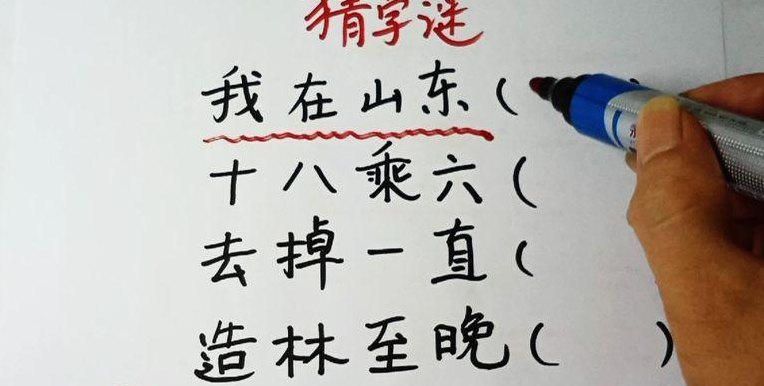 猜字谜
我在山东(
十八乘六(
去掉一直(
造林至晚( )